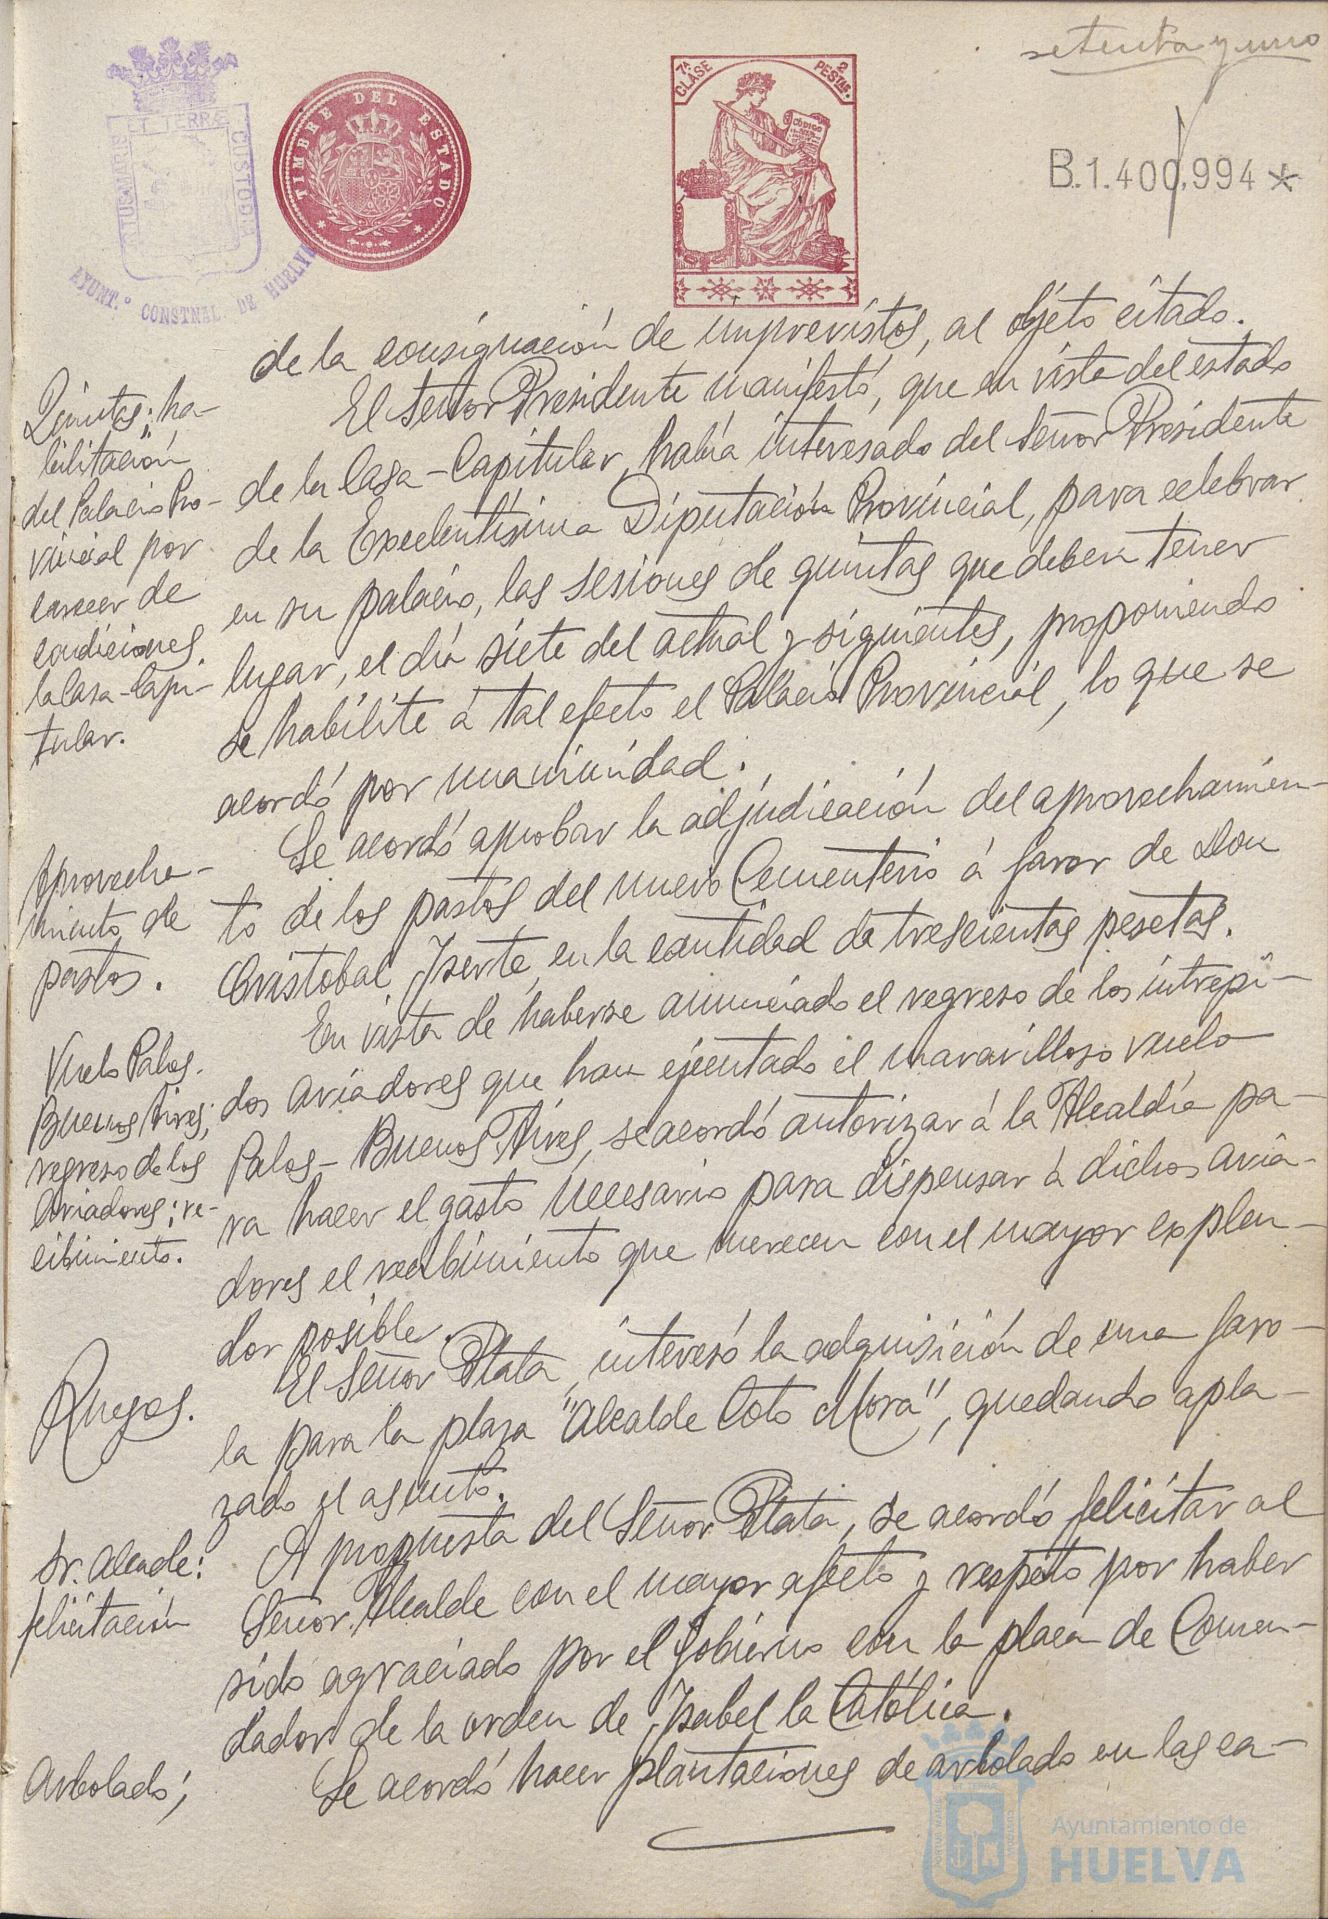 setenta y uno
7ª CLASE
2 PESTAS.
TIMBRE DEL ESTADO
CODIGO
B.1.400,994 *
PORTUS MARIS ET TERRÆ CUSTODIA
AYUNT.º CONSTNAL. DE HUELVA
de la consignación de imprevistos, al objeto citado.
Quintas; ha-
bilitación
del Palacio Pro-
vincial por
carecer de
condiciones
la Casa-Capi-
tular.
El Señor Presidente manifestó, que en vista del estado
de la Casa-Capitular, había interesado del Señor Presidente
de la Excelentísima Diputación Provincial, para celebrar
en su palacio, las sesiones de quintas que deben tener
lugar, el día siete del actual y siguientes, proponiendo
se habilite á tal efecto el Palacio Provincial, lo que se
acordó por unanimidad.
Aprovecha-
miento de
pastos.
Se acordó aprobar la adjudicación del aprovechamien-
to de los pastos del nuevo Cementerio á favor de Don
Cristobal Iserte, en la cantidad de trescientas pesetas.
Vuelo Palos-
Buenos Aires;
regreso de los
Aviadores; re-
cibimiento.
En vista de haberse anunciado el regreso de los intrepi-
dos aviadores que han ejecutado el maravilloso vuelo
Palos-Buenos Aires, se acordó autorizar á la Alcaldía pa-
ra hacer el gasto necesario para dispensar á dichos avia-
dores el recibimiento que merecen con el mayor esplen-
dor posible.
Ruegos.
El Señor Plata, interesó la adquisición de una faro-
la para la plaza "Alcalde Coto Mora", quedando apla-
zado el asunto.
Sr. Alcalde:
felicitación
A propuesta del Señor Plata, se acordó felicitar al
Señor Alcalde con el mayor afecto y respeto por haber
sido agraciado por el Gobierno con la placa de Comen-
dador de la orden de Isabel la Católica.
Arbolado;
Se acordó hacer plantaciones de arbolado en las ca-
Ayuntamiento de
HUELVA